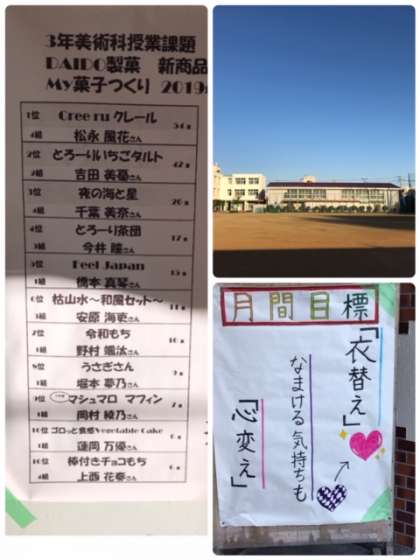 3年美術科授業課題
DAIDO製菓 新商品
My菓子つくり 2019
1位 Cree ru クレール
4組 松永 風花さん 54票
2位 とろーりいちごタルト
2組 吉田 美憂さん 42票
3位 夜の海と星
4組 千葉 美奈さん
4位 とろーり茶団
3組 今井 瞳さん
5位 Feel Japan
1組 橋本 真琴さん
6位 枯山水～和風セット～
3組 安原 海吏さん
7位 令和もち
1組 野村 颯汰さん
8位 うさぎさん
1組 堀本 夢乃さん
9位 マシュマロ マフィン
岡村 綾乃さん
10位 ゴロッと食感Vegetable Cake
蓮岡 万優さん
10位 棒付きチョコもち
上西 花奏さん
月間目標
「衣替え」
なまける気持ちも
「心変え」